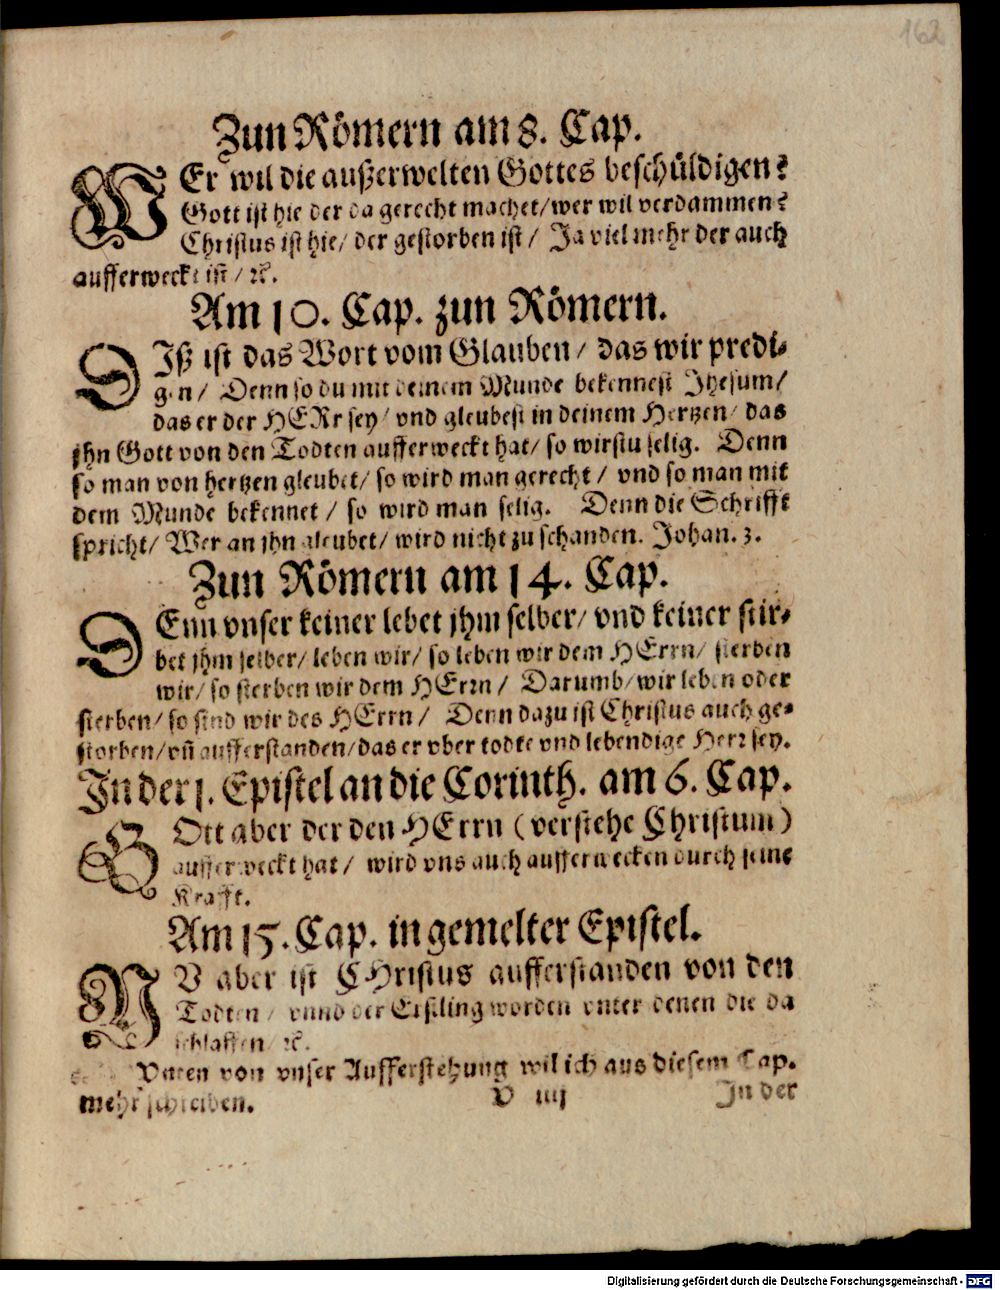 162
Zun Römern am 8. Cap.
WEr wil die außerwelten Gottes beschüldigen?
Gott ist hie der da gerecht machet/ wer wil verdammen?
Christus ist hie/ der gestorben ist/ Ja viel mehr der auch
aufferweckt ist/ ꝛc.
Am 10. Cap. zun Römern.
DIß ist das Wort vom Glauben/ das wir predi-
gen/ Denn so du mit deinem Munde bekennest Jhesum/
das er der HERr sey/ vnd gleubest in deinem Hertzen/ das
jhn Gott von den Todten aufferweckt hat/ so wirstu selig. Denn
so man von hertzen gleubet/ so wird man gerecht/ vnd so man mit
dem Munde bekennet/ so wird man selig. Denn die Schrifft
spricht/ Wer an jhn gleubet/ wird nicht zu schanden. Johan. 3.
Zun Römern am 14. Cap.
DEnn vnser keiner lebet jhm selber/ vnd keiner stir-
bet jhm selber/ leben wir/ so leben wir dem HErrn/ sterben
wir/ so sterben wir dem HErrn/ Darumb/ wir leben oder
sterben/ so sind wir des HErrn/ Denn dazu ist Christus auch ge-
storben/ vñ aufferstanden/ das er vber todte vnd lebendige Herr sey.
In der 1. Epistel an die Corinth. am 6. Cap.
GOtt aber der den HErrn (verstehe Christum)
aufferweckt hat/ wird vns auch aufferwecken durch seine
Krafft.
Am 15. Cap. in gemelter Epistel.
NU aber ist CHristus aufferstanden von den
Todten/ vnnd der Erstling worden vnter denen die da
schlaffen/ ꝛc.
von vnser Aufferstehung wil ich aus diesem Cap.
mehr schreiben. V iiij In der
Digitalisierung gefördert durch die Deutsche Forschungsgemeinschaft - DFG